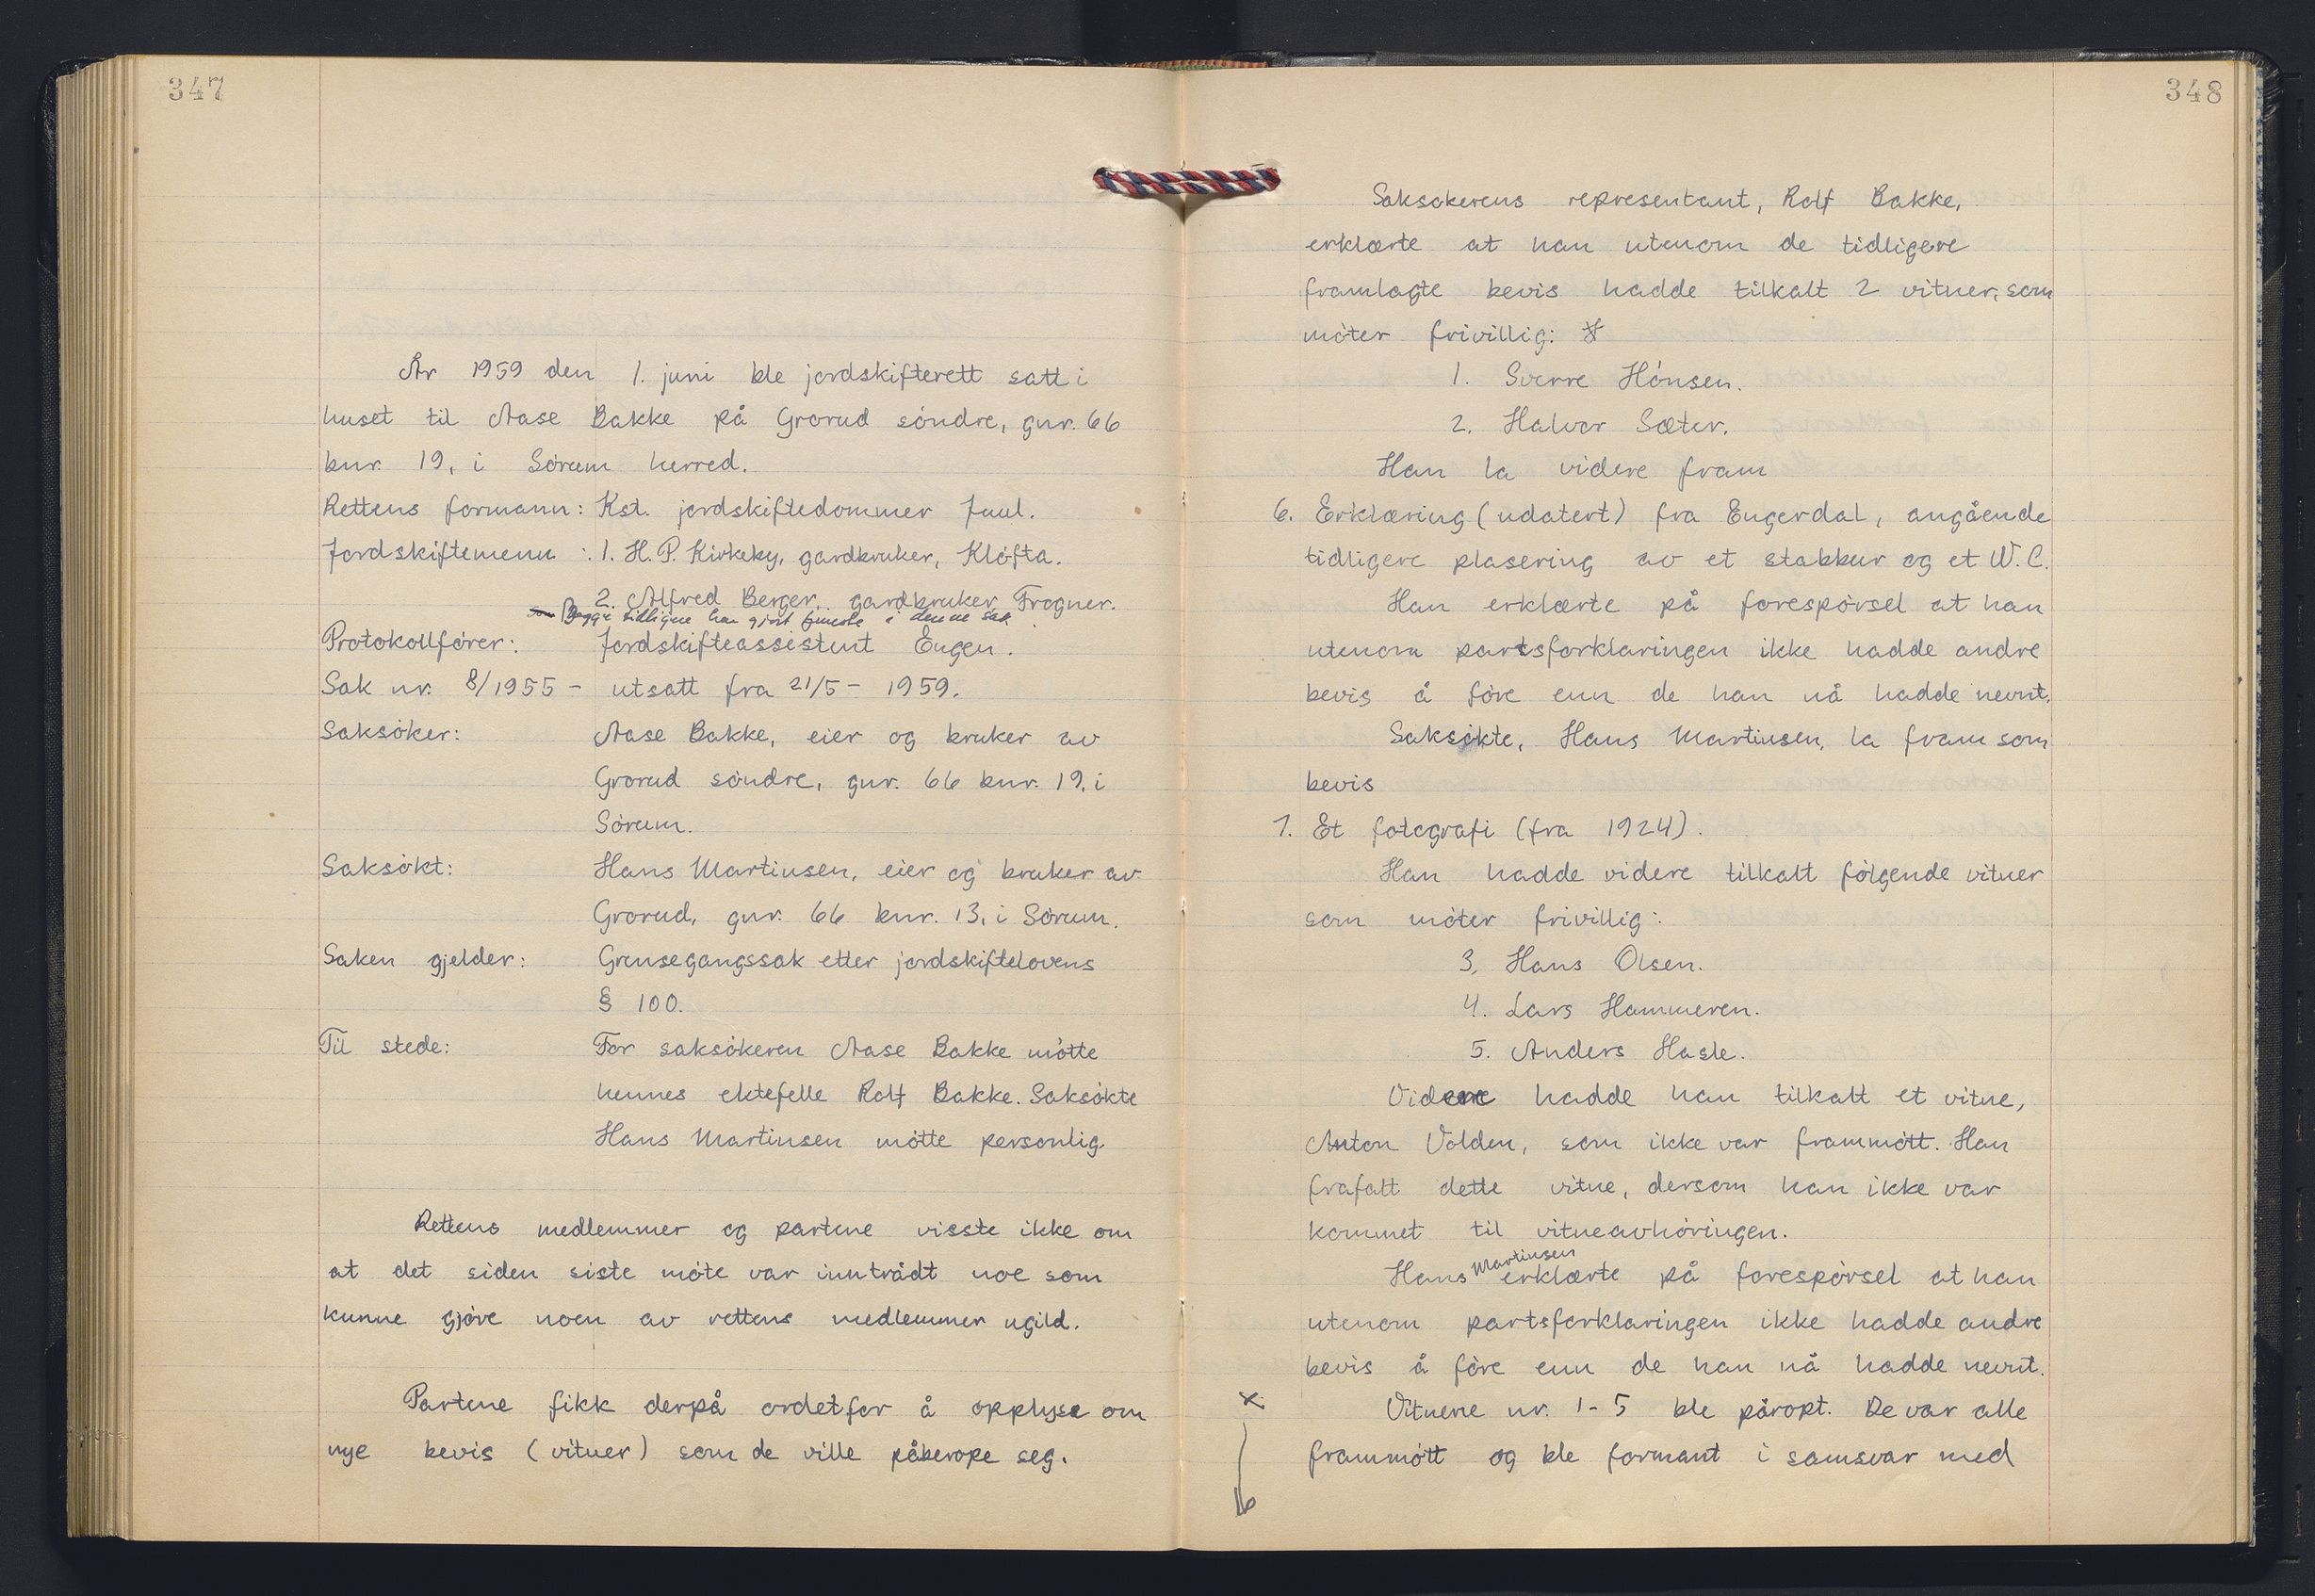 347
År 1959 den 1. juni ble jordskifterett satt i
huset til Aase Bakke på Grorud söndre, gnr. 66
bnr. 19, i Sörum herred.
Rettens formann: Kst. jordskiftedommer Juul.
Jordskiftemenn: 1. H. P. Kirkeby, gardbruker, Klöfta.
2. Alfred Berger, gardbruker, Frogner.
Begge tidligere har gjort teneste i denne sak
Protokollförer: Jordskifteassistent Engen.
Sak nr. 8/1955 - utsatt fra 21/5 - 1959.
Saksöker: Aase Bakke, eier og bruker av
Grorud söndre, gnr. 66 bnr. 19, i
Sörum.
Saksökt: Hans Martinsen, eier og bruker av
Grorud, gnr. 66 bnr. 13, i Sörum.
Saken gjelder: Grensegangssak etter jordskiftelovens
§ 100.
Til stede: For saksökeren Aase Bakke mötte
hennes ektefelle Rolf Bakke. Saksökte
Hans Martinsen mötte personlig.
Rettens medlemmer og partene visste ikke om
at det siden siste möte var inntrådt noe som
kunne gjöre noen av rettens medlemmer ugild.
Partene fikk derpå ordet for å opplyse om
nye bevis (vitner) som de ville påberope seg.
348
Saksökerens representant, Rolf Bakke,
erklærte at han utenom de tidligere
framlagte bevis hadde tilkalt 2 vitner, som
möter frivillig:
1. Sverre Hönsen.
2. Halvor Sæter.
Han la videre fram
6. Erklæring (udatert) fra Engerdal, angående
tidligere plasering av et stabbur og et W.C.
Han erklærte på forespörsel at han
utenom partsforklaringen ikke hadde andre
bevis å före enn de han nå hadde nevnt.
Saksökte, Hans Martinsen, la fram som
bevis
7. Et fotografi (fra 1924).
Han hadde videre tilkalt fölgende vitner
som möter frivillig:
3. Hans Olsen.
4. Lars Hammeren.
5. Anders Hasle.
Videre hadde han tilkalt et vitne,
Anton Volden, som ikke var frammött. Han
frafalt dette vitne, dersom han ikke var
kommet til vitneavhöringen.
Hans Martinsen erklærte på forespörsel at han
utenom partsforklaringen ikke hadde andre
bevis å före enn de han nå hadde nevnt.
x Vitnene nr. 1-5 ble påropt. De var alle
frammött og ble formant i samsvar med